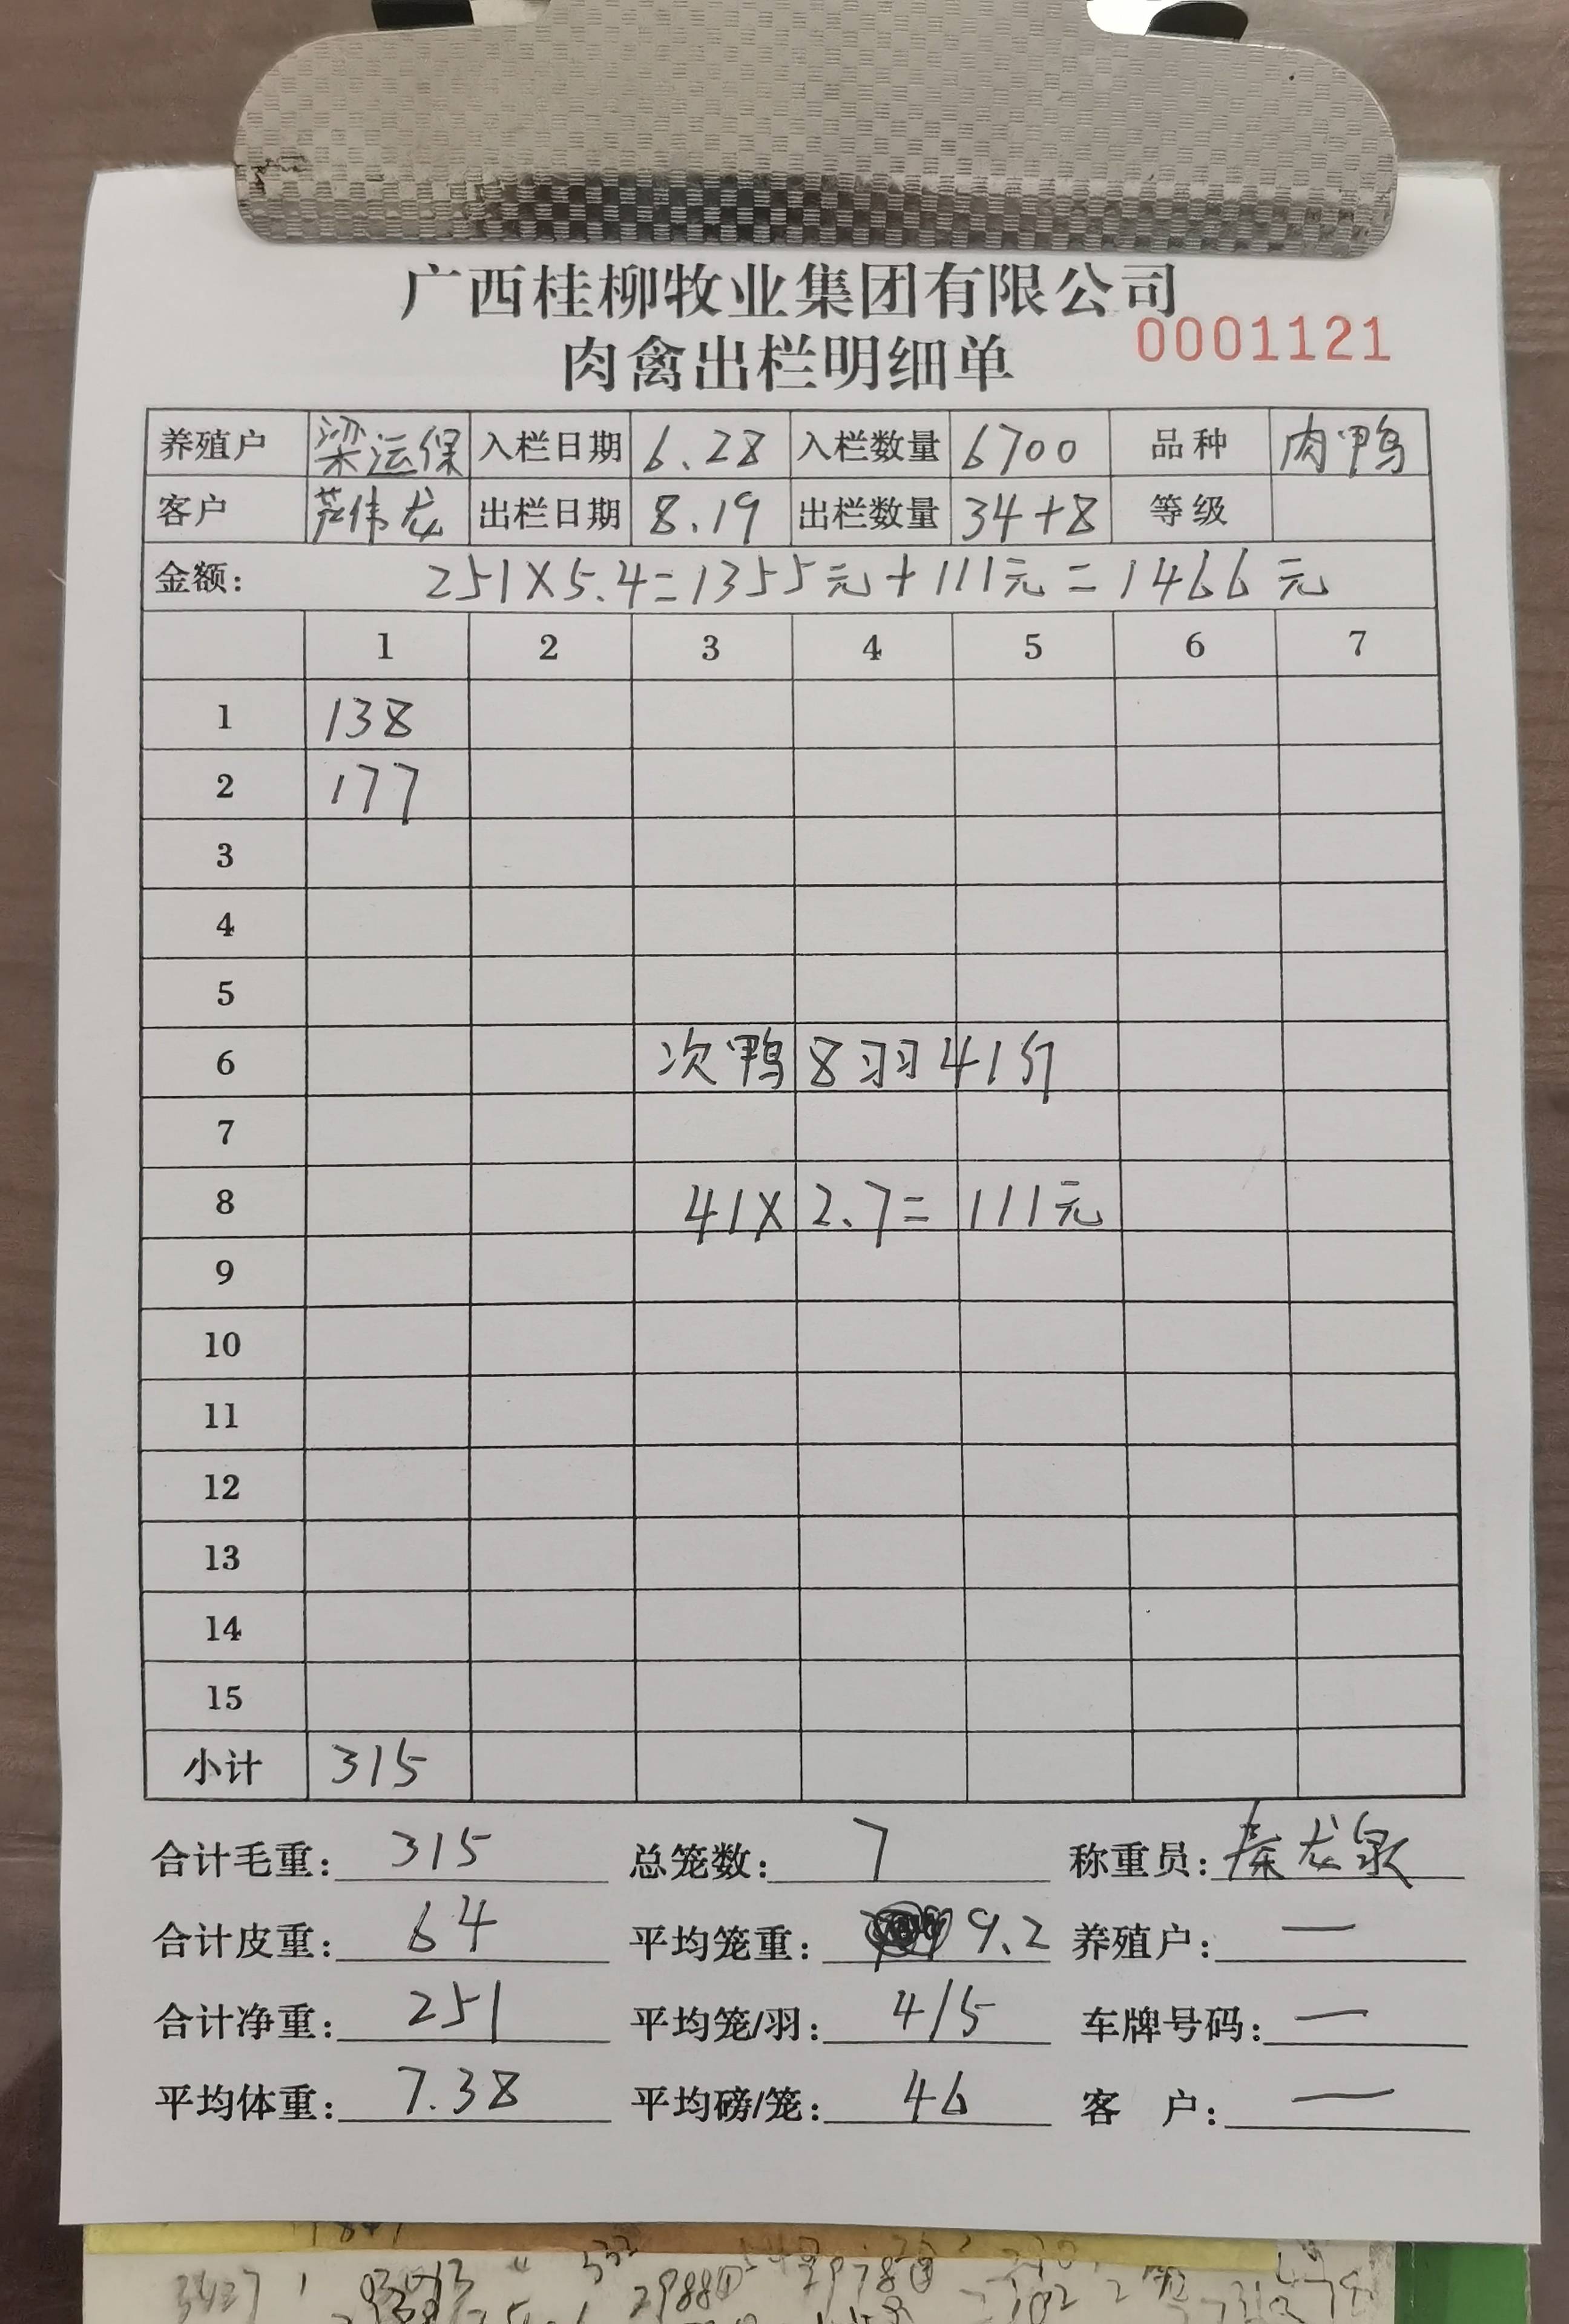 广西桂柳牧业集团有限公司
肉禽出栏明细单 0001121
养殖户 梁运保 入栏日期 6.28 入栏数量 6700 品种 肉鸭
客户 伟龙 出栏日期 8.19 出栏数量 34+8 等级
金额: 251X5.4=1355元+111元=1466元
1 2 3 4 5 6 7
1 138
2 177
3
4
5
6 次鸭8羽41斤
7
8 41X2.7=111元
9
10
11
12
13
14
15
小计 315
合计毛重: 315 总笼数: 7 称重员: 秦龙泉
合计皮重: 64 平均笼重: 9.2 养殖户: —
合计净重: 251 平均笼/羽: 4/5 车牌号码: —
平均体重: 7.38 平均磅/笼: 46 客 户: —